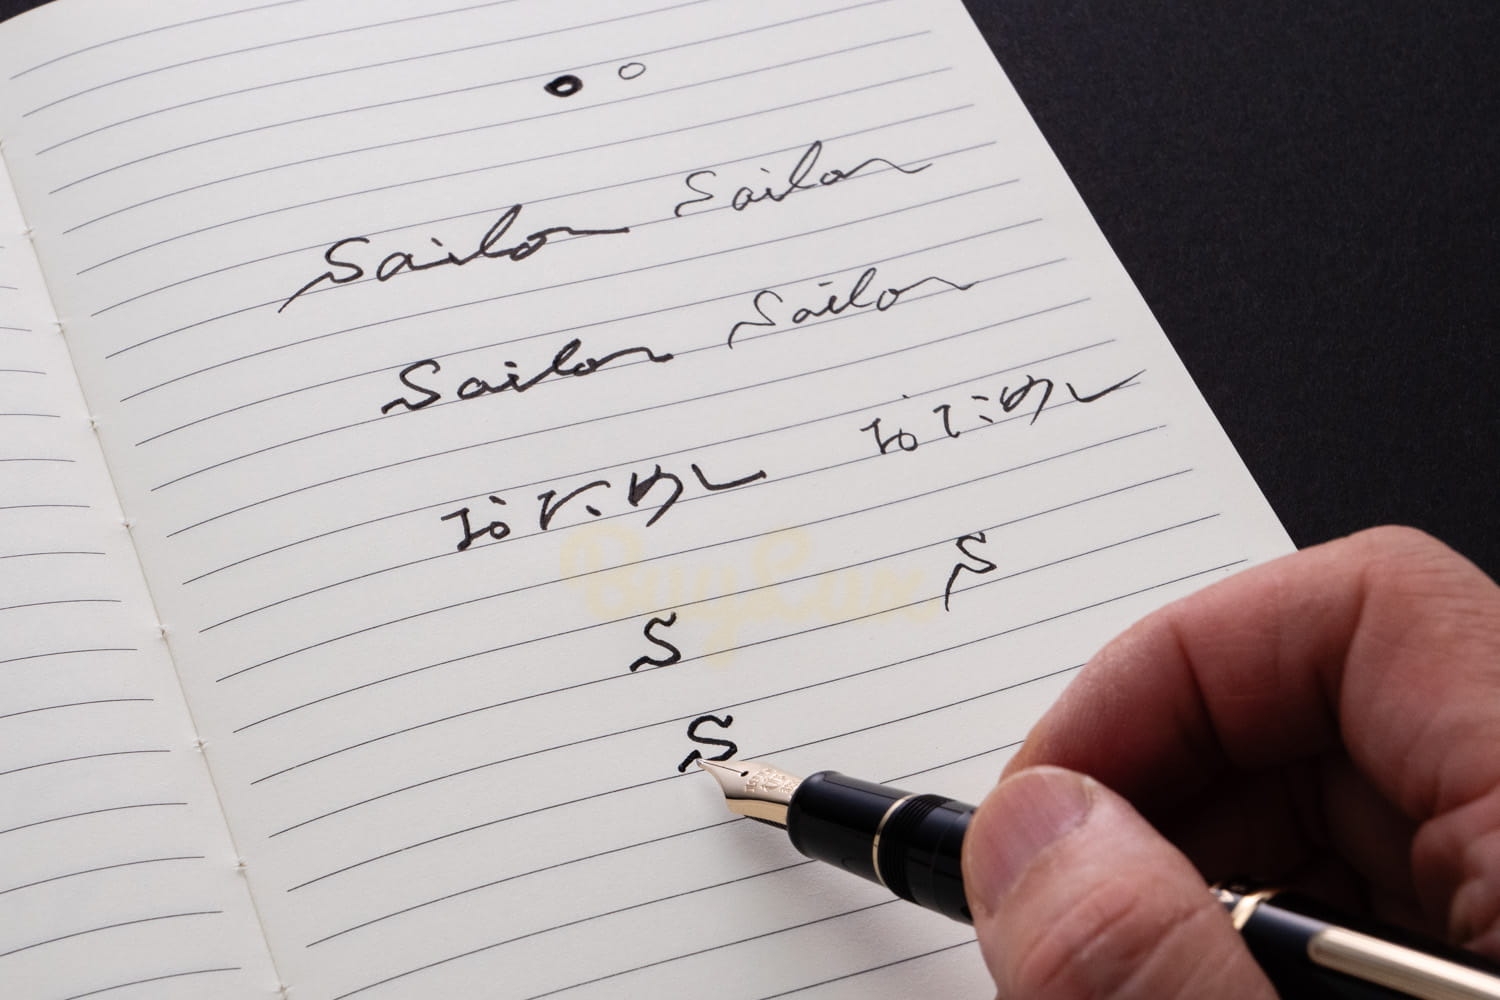 Sailor Sailor
Sailor Sailor
おためし おためし
S
S
BuyLux
S